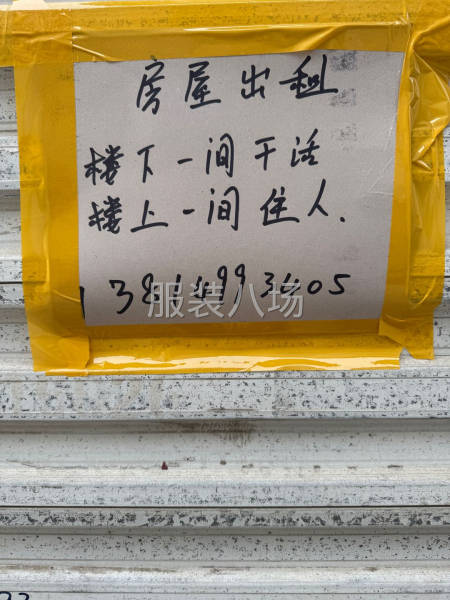 房屋出租
楼下一间干活
楼上一间住人.
13814993405
服装八场